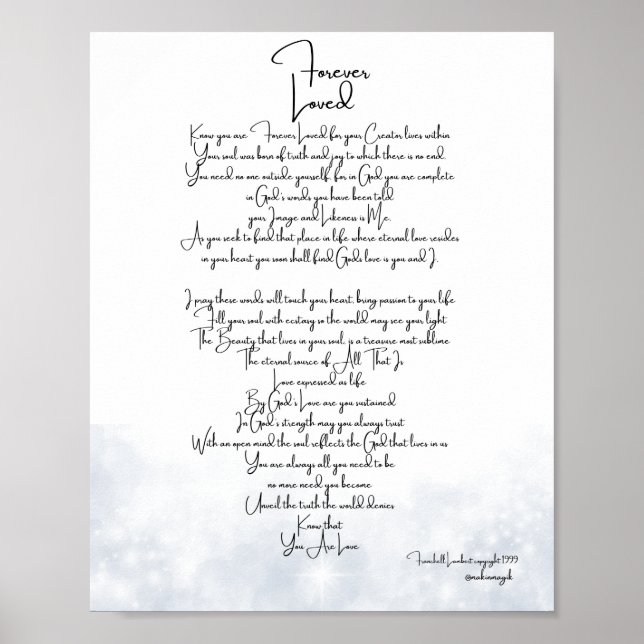 Forever
Loved
Know you are Forever Loved for your Creator lives within
Your soul was born of truth and joy to which there is no end.
You need no one outside yourself, for in God you are complete
in God's words you have been told
your Image and Likeness is Me.
As you seek to find that place in life where eternal love resides
in your heart you soon shall find Gods love is you and I.
I pray these words will touch your heart, bring passion to your life
Fill your soul with ecstasy so the world may see your light
The Beauty that lives in your soul, is a treasure most sublime
The eternal source of All That Is
Love expressed as life
By God's Love are you sustained
In God's strength may you always trust
With an open mind the soul reflects the God that lives in us
You are always all you need to be
no more need you become
Unveil the truth the world denies
Know that
You Are Love
Franchell Lambert copyright 1999
@nakinmagik